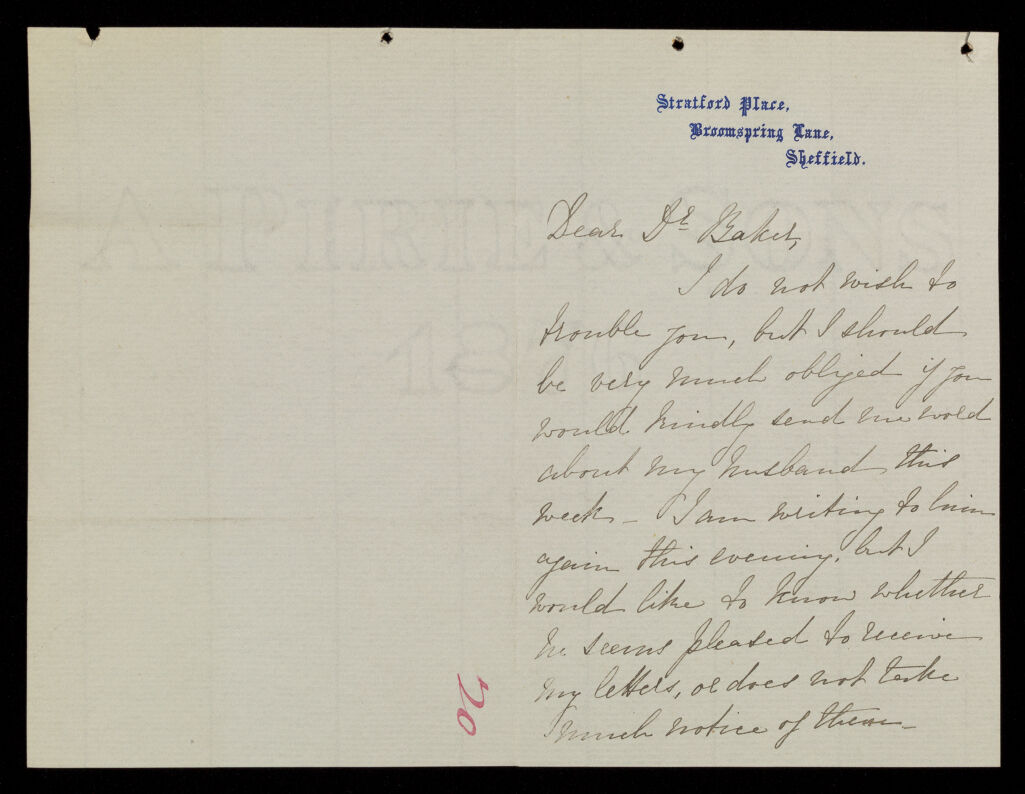 Stratford Place,
Broomspring Lane,
Sheffield.
A PIRIE & SONS
187
Dear Dr Baker,
I do not wish to
trouble you, but I should
be very much obliged if you
would kindly send me word
about my husband this
week – I am writing to him
again this evening, but I
would like to know whether
he seems pleased to receive
my letters, or does not take
much notice of them –
20